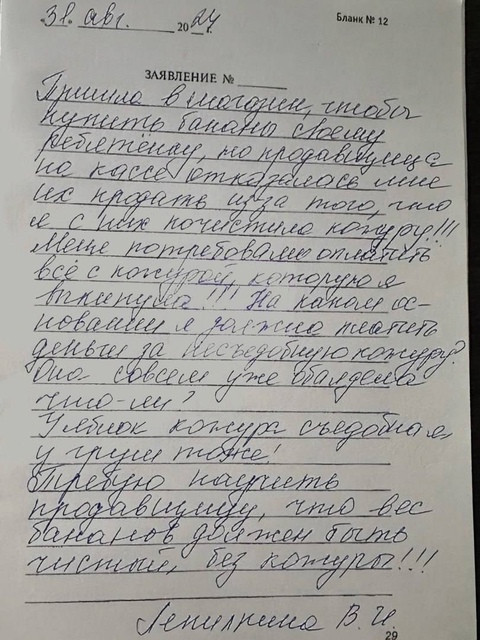 31. авг. 2024 г.
Бланк № 12
ЗАЯВЛЕНИЕ №
Пришла в магазин, чтобы
купить бананы своему
ребятёнку, но продавщица
на кассе отказалась мне
их продать из за того, что
я с них почистила кожуру!!!
Меня потребовали оплатить
всё с кожурой, которую я
выкинула!!! На каком ос-
новании я должна платить
деньги за несъедобную кожуру?
Она совсем уже обалдела
что-ли?
У яблок кожура съедобная,
у груш тоже!
Требую научить
продавщицу, что вес
бананов должен быть
чистый, без кожуры!!!
Лепилкина В. И.
29